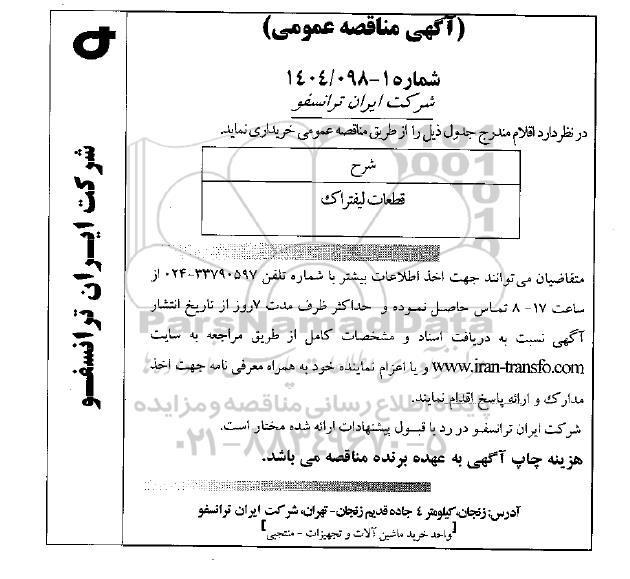 (آگهی مناقصه عمومی)
شماره ۱-۱۴۰۴/۰۹۸
شرکت ایران ترانسفو
در نظر دارد اقلام مندرج جدول ذیل را از طریق مناقصه عمومی خریداری نماید.
شرح
قطعات لیفتراک
متقاضیان می توانند جهت اخذ اطلاعات بیشتر با شماره تلفن ۳۳۷۹۰۵۹۷-۰۲۴ از
ساعت ۱۷- ۸ تماس حاصل نموده و حداکثر ظرف مدت ۷روز از تاریخ انتشار
آگهی نسبت به دریافت اسناد و مشخصات کامل از طریق مراجعه به سایت
www.iran-transfo.com و یا اعزام نماینده خود به همراه معرفی نامه جهت اخذ
مدارک و ارائه پاسخ اقدام نمایند.
شرکت ایران ترانسفو در رد یا قبول پیشنهادات ارائه شده مختار است.
هزینه چاپ آگهی به عهده برنده مناقصه می باشد.
آدرس: زنجان، کیلومتر ۴ جاده قدیم زنجان- تهران، شرکت ایران ترانسفو
[واحد خرید ماشین آلات و تجهیزات - منتجبی]
شرکت ایران ترانسفو
ParsNamadData
پایگاه اطلاع رسانی مناقصه و مزایده
۰۲۱-۸۸۳۴۹۶۷۰-۵